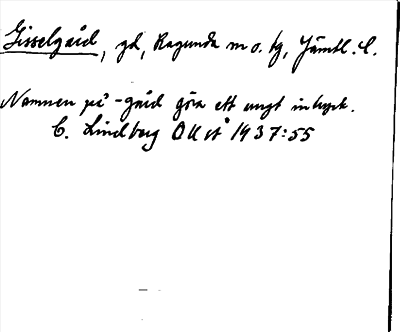 Gisselgård, gd, Ragunda sn o. tg, Jämtl. l.
Namnen på -gård göra ett ungt intryck.
C. Lindberg OUÅ 1937:55